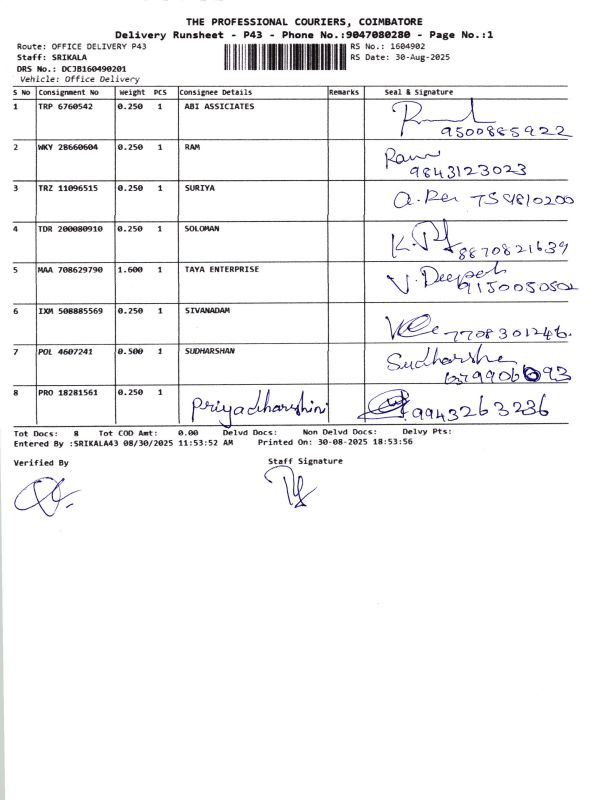 THE PROFESSIONAL COURIERS, COIMBATORE
Delivery Runsheet - P43 - Phone No.:9047080280 - Page No.:1
Route: OFFICE DELIVERY P43 RS No.: 1604902
Staff: SRIKALA RS Date: 30-Aug-2025
DRS No.: DCJB160490201
Vehicle: Office Delivery
S No Consignment No Weight PCS Consignee Details Remarks Seal & Signature
1 TRP 6760542 0.250 1 ABI ASSICIATES
9500885922
2 WKY 28660604 0.250 1 RAM Ram
9843123023
3 TRZ 11096515 0.250 1 SURIYA
4 TDR 200080910 0.250 1 SOLOMAN
8870821639
5 MAA 708629790 1.600 1 TAYA ENTERPRISE V. Deepak
9150050502
6 IXM 508885569 0.250 1 SIVANADAM
7708301246.
7 POL 4607241 0.500 1 SUDHARSHAN Sudharsha
8 PRO 18281561 0.250 1 Priyadharshini 9943263236
Tot Docs: 8 Tot COD Amt: 0.00 Delvd Docs: Non Delvd Docs: Delvy Pts:
Entered By :SRIKALA43 08/30/2025 11:53:52 AM Printed On: 30-08-2025 18:53:56
Verified By Staff Signature